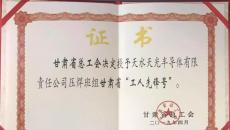 证书
甘肃省总工会决定授予天水天光半导体有限
责任公司压焊班组甘肃省“工人先锋号”。
甘肃省总工会
二〇一九年四月